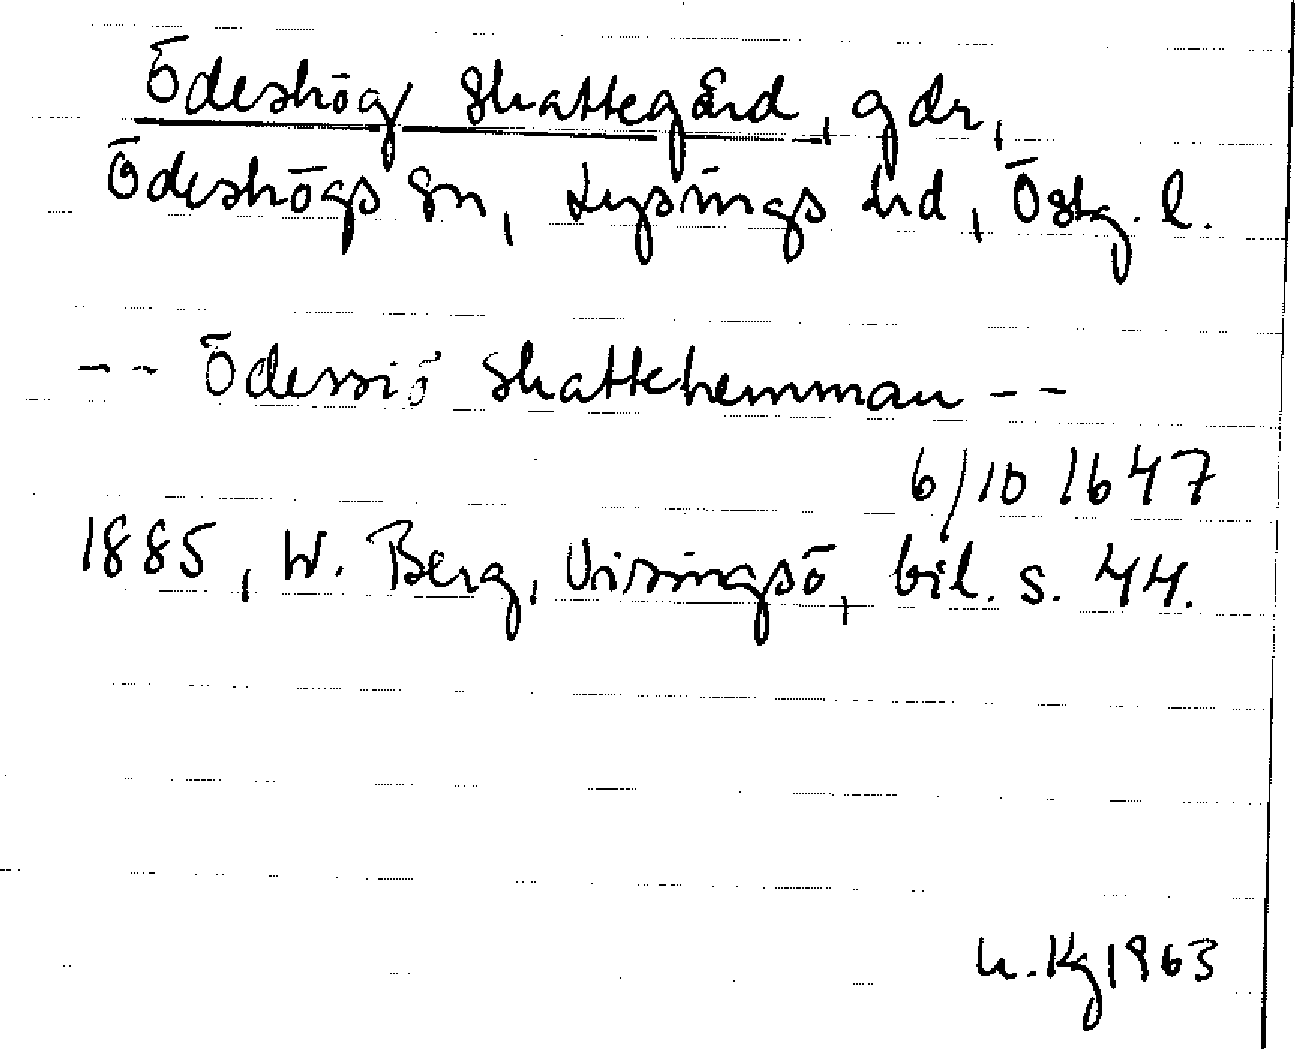 Ödeshög Skattegård, gdr,
Ödeshögs sn, Lysings hd, Östg. l.
-- Ödessiö skattehemman --
6/10 1647
1885, W. Berg, Visingsö, bil. s. 44.
h. Kg 1963